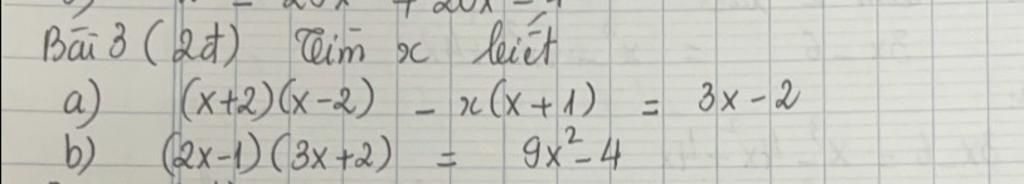 Bài 3 (2đ) Tìm x biết
a) (x+2)(x-2) - x(x+1) = 3x-2
b) (2x-1)(3x+2) = 9x²-4